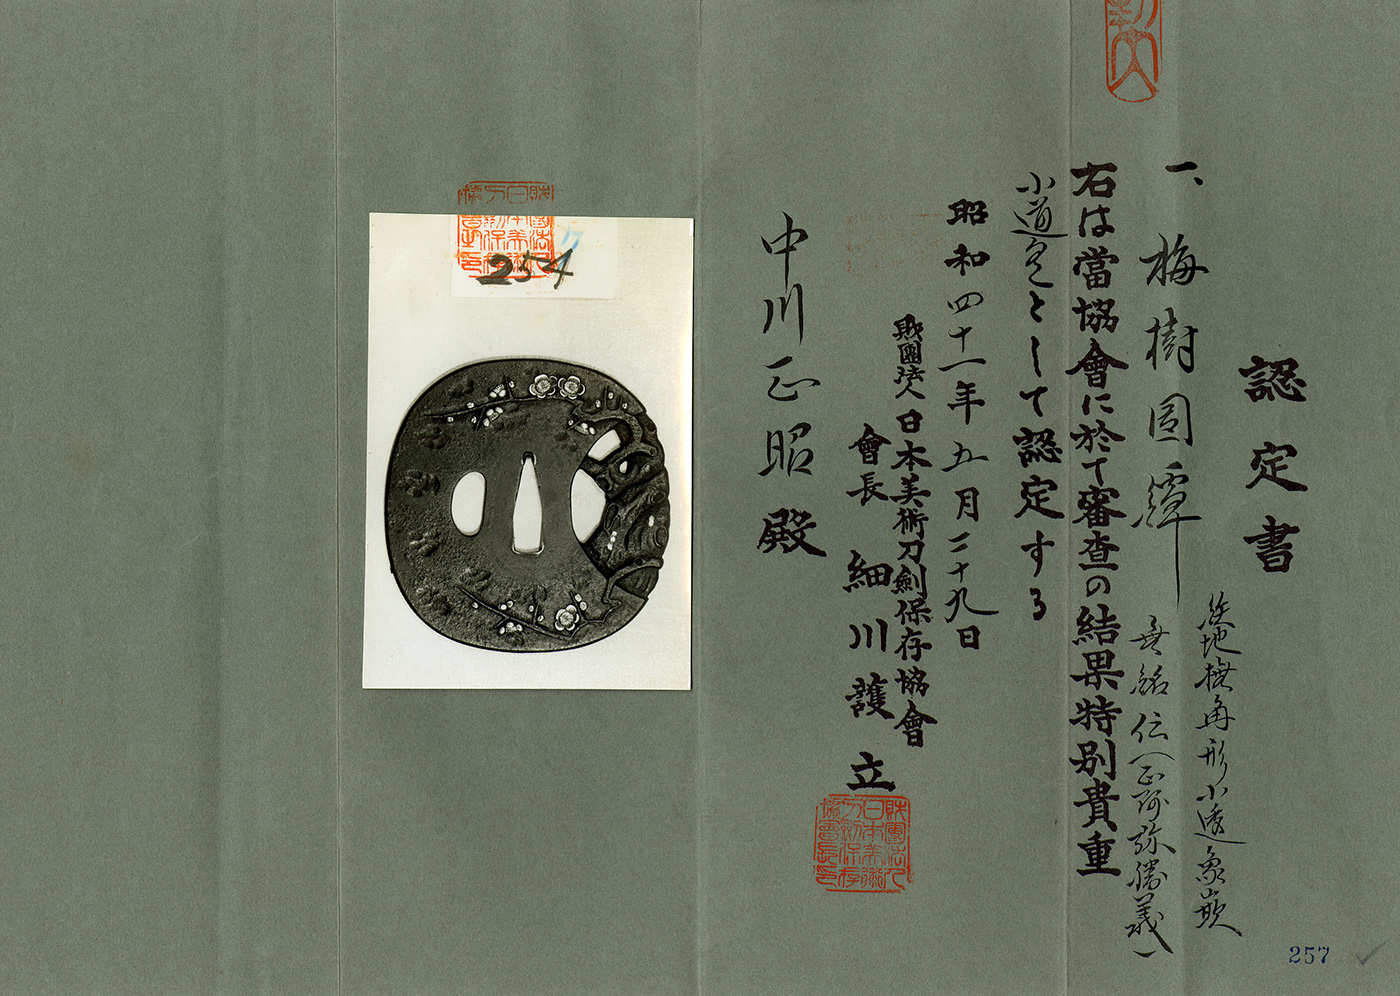 認定書
鉄地撫角形小透象嵌
一、梅樹図鐔
無銘 伝(正阿弥勝義)
右は當協會に於て審査の結果特別貴重
小道具として認定する
昭和四十一年五月二十九日
財團法人日本美術刀劍保存協會
會長 細川護立
中川正昭殿
254
257